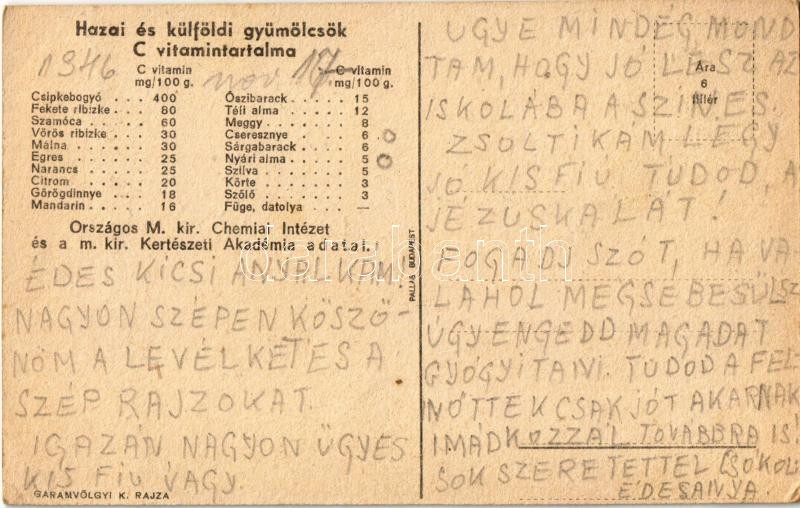 Hazai és külföldi gyümölcsök
C vitamintartalma
1946 nov. 17
C vitamin mg/100 g.
C vitamin mg/100 g.
Csipkebogyó . . . 400
Fekete ribizke . . . 80
Szamóca . . . . . 60
Vörös ribizke . . . 30
Málna . . . . . . 30
Egres . . . . . . 25
Narancs . . . . . 25
Citrom . . . . . 20
Görögdinnye . . . 18
Mandarin . . . . . 16
Őszibarack . . . . 15
Téli alma . . . . . 12
Meggy . . . . . . 8
Cseresznye . . . . 6
Sárgabarack . . . . 6
Nyári alma . . . . . 5
Szilva . . . . . . 5
Körte . . . . . . 3
Szőlő . . . . . . 3
Füge, datolya . . . —
Országos M. kir. Chemiai Intézet
és a m. kir. Kertészeti Akadémia adatai.
ÉDES KICSI ANYALKÁM!
NAGYON SZÉPEN KÖSZÖ-
NÖM A LEVÉLKÉT ÉS A
SZÉP RAJZOKAT.
IGAZÁN NAGYON ÜGYES
KIS FIÚ VAGY.
GARAMVÖLGYI K. RAJZA
PALLAS BUDAPEST
Ára
6
fillér
UGYE MINDÉG MOND
TAM, HOGY JÓ LESZ AZ
ISKOLÁBA A SZÍNES
ZSOLTIKÁM LEGY
JÓ KIS FIÚ TUDOD A
JÉZUSKALÁT!
FOGADJ SZÓT, HA VA-
LAHOL MEGSEBESÜLSZ
ÚGY ENGEDD MAGADAT
GYÓGYÍTANI. TUDOD A FEL
NŐTTEK CSAK JÓT AKARNAK
IMÁDKOZZÁL TOVÁBBRA IS!
SOK SZERETETTEL CSÓKOL
ÉDESANYA.
darabanth